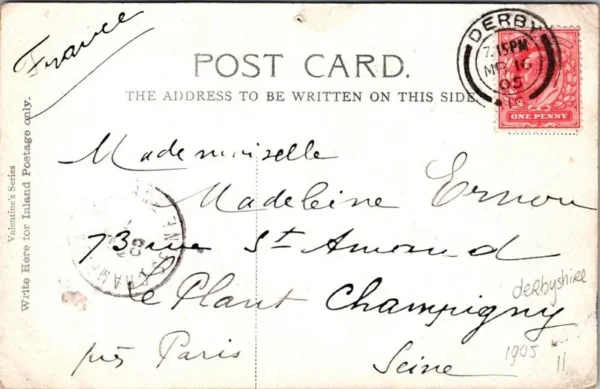 France
POST CARD.
THE ADDRESS TO BE WRITTEN ON THIS SIDE
DERBY
7.15PM
MR 16
05
ONE PENNY
Valentine's Series
Write Here for Inland Postage only.
Mademoiselle
Madeleine Ernou
73 rue St Amand
le Plant Champigny
près Paris
Seine
derbyshire
1905
11